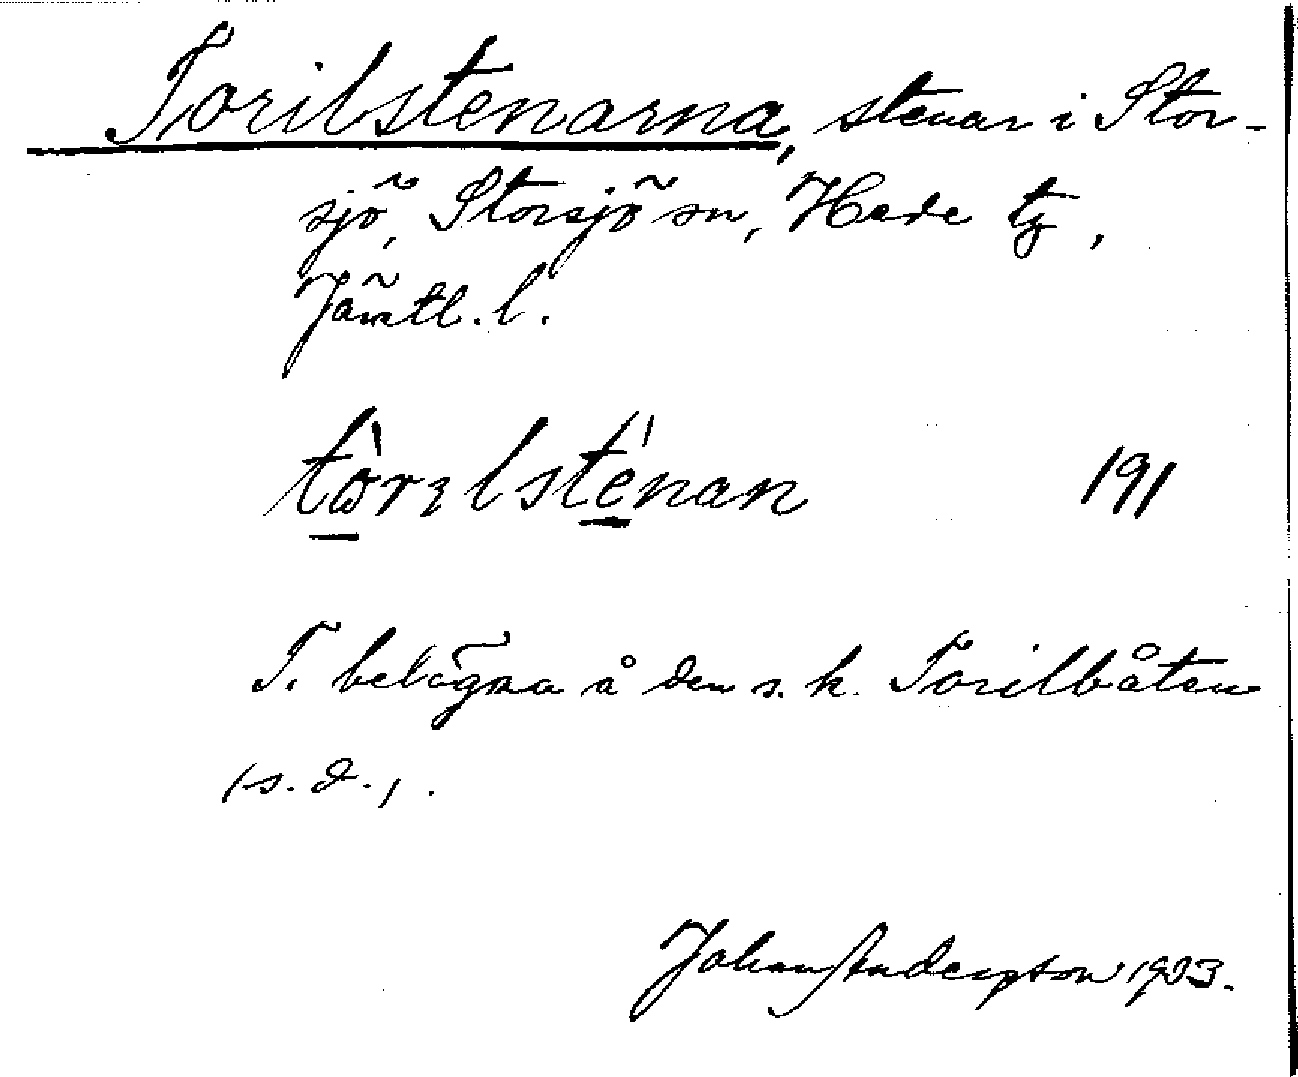 Torilstenarna, stenar i Stor-
sjö, Storsjö sn, Hede tg,
Jämtl. l.
tὼrılsténan 191
T. belägna å den s. k. Torilbåten
(s. d.).
Johan Anderson 1923.